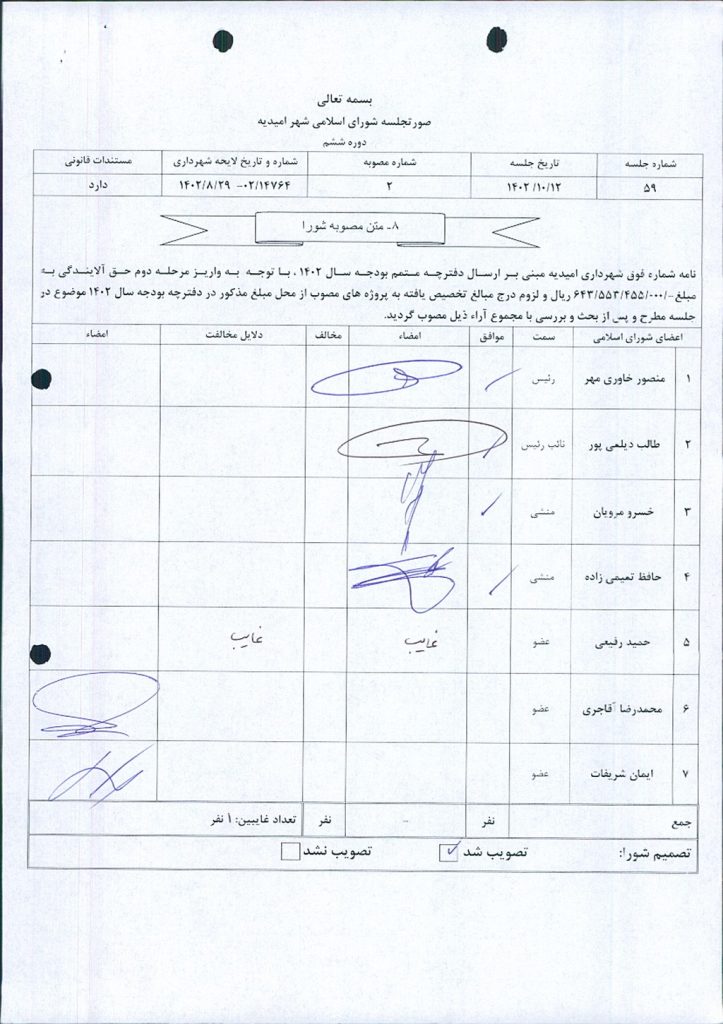 بسمه تعالی
صورتجلسه شورای اسلامی شهر امیدیه
دوره ششم
شماره جلسه تاریخ جلسه شماره مصوبه شماره و تاریخ لایحه شهرداری مستندات قانونی
۵۹ ۱۴۰۲/۱۰/۱۲ ۲ ۰۲/۱۴۷۶۴- ۱۴۰۲/۸/۲۹ دارد
۸- متن مصوبه شورا
نامه شماره فوق شهرداری امیدیه مبنی بر ارسال دفترچه متمم بودجه سال ۱۴۰۲، با توجه به واریز مرحله دوم حق آلایندگی به
مبلغ-/۶۴۳/۵۵۳/۴۵۵/۰۰۰ ریال و لزوم درج مبالغ تخصیص یافته به پروژه های مصوب از محل مبلغ مذکور در دفترچه بودجه سال ۱۴۰۲ موضوع در
جلسه مطرح و پس از بحث و بررسی با مجموع آراء ذیل مصوب گردید.
اعضای شورای اسلامی سمت موافق امضاء مخالف دلایل مخالفت امضاء
۱ منصور خاوری مهر رئیس
۲ طالب دیلمی پور نائب رئیس
۳ خسرو مرویان منشی
۴ حافظ تمیمی زاده منشی
۵ حمید رفیعی عضو غایب غایب
۶ محمدرضا آقاجری عضو
۷ ایمان شریفات عضو
جمع نفر - نفر تعداد غایبین: ۱ نفر
تصمیم شورا: تصویب شد تصویب نشد